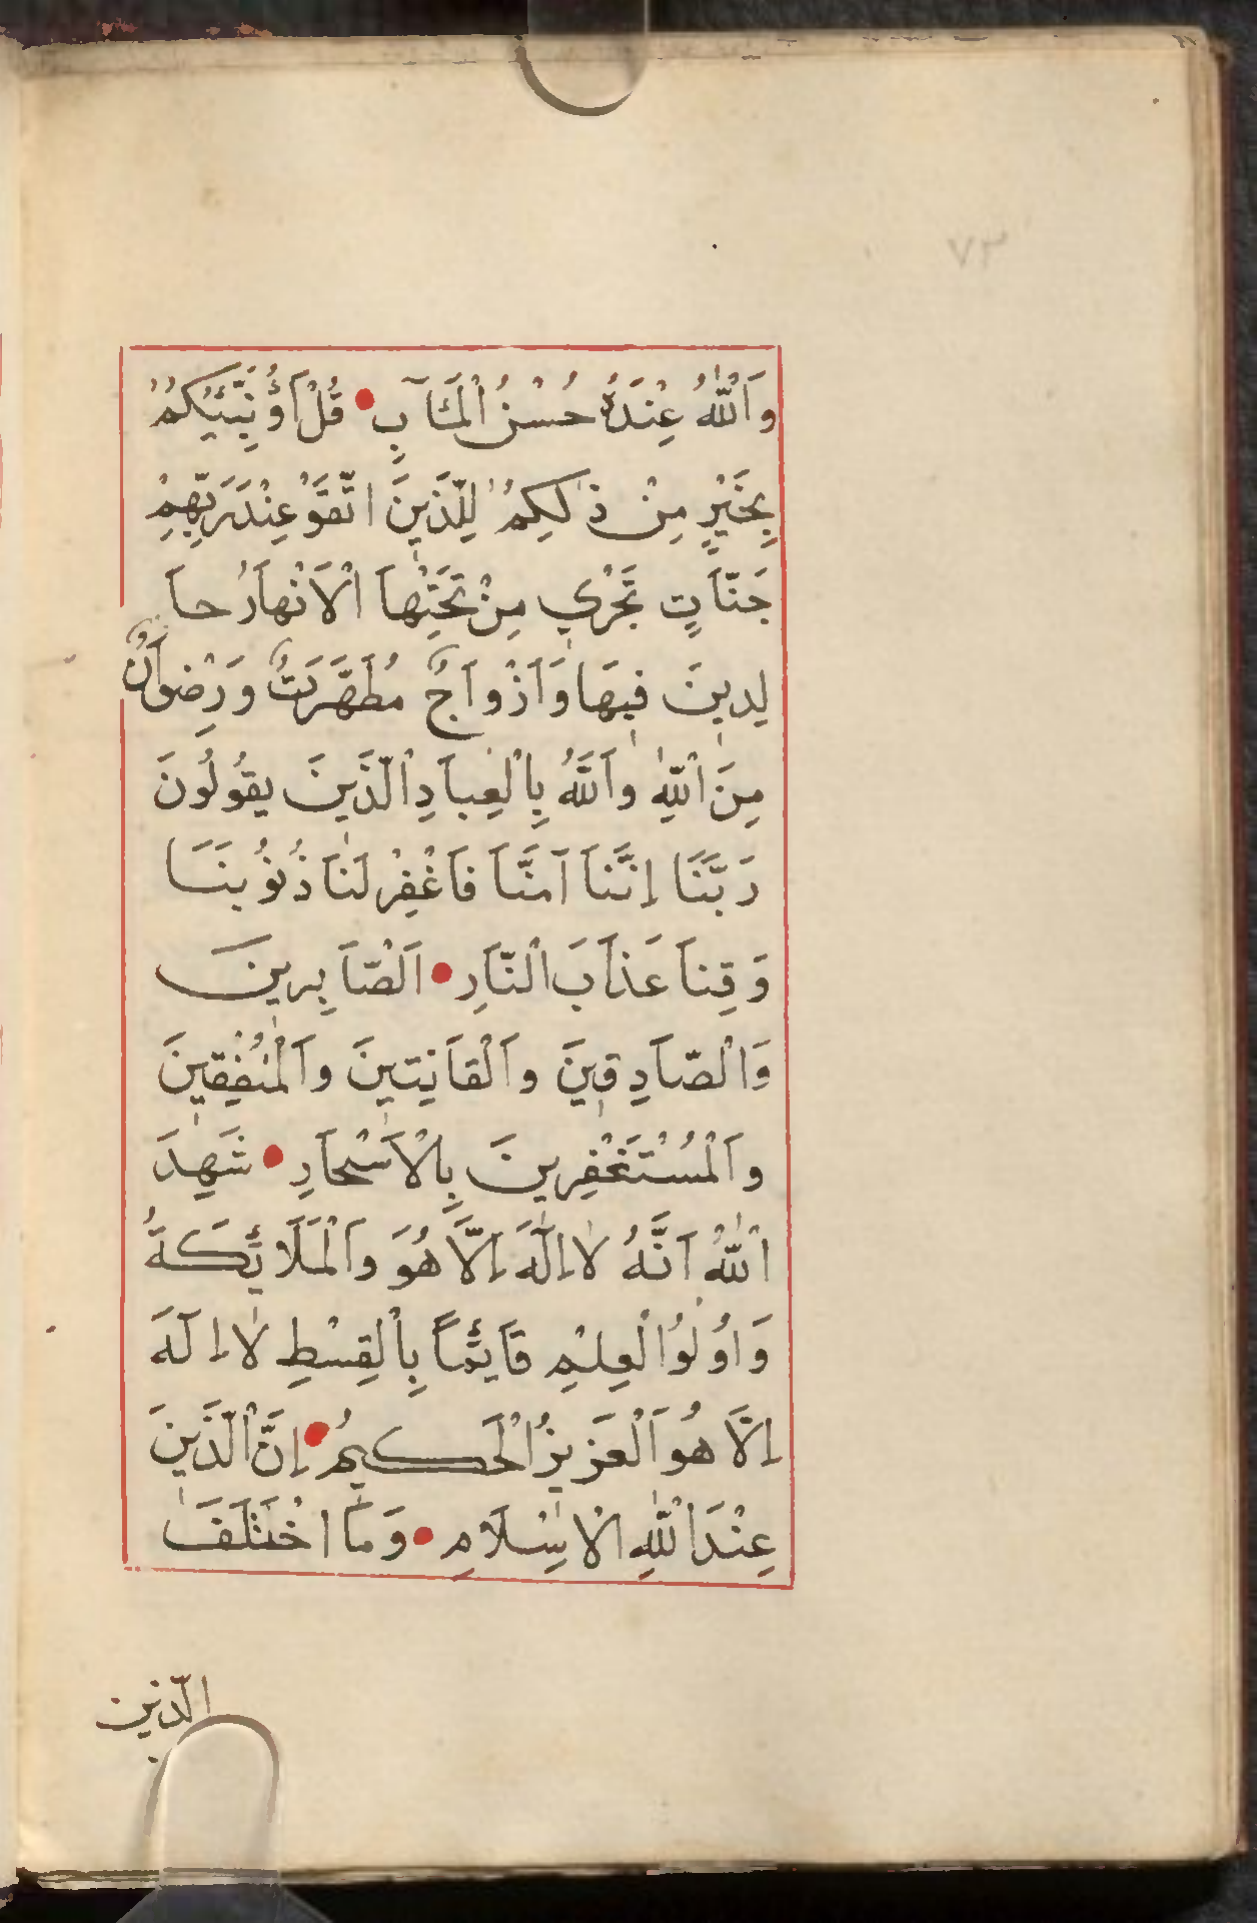 ٧٣
وَاَللّٰهُ عِنْدَهُ حُسْنُ الْمَـَٔآبِ قُلْ اَؤُنَبِّئُكُمْ
بِخَيْرٍ مِنْ ذٰلِكِمُ لِلَّذِينَ اتَّقَوْ عِنْدَ رَبِّهِمْ
جَنَّاَتٍ تَجْرِي مِنْ تَحْتِهاَ اْلاَنْهاَرُ حاَ
لِدِينَ فِيهَا وَاَزْواَجٌ مُطَهَّرَتٌ وَرِضْواَنٌ
مِنَ اْللّٰهِ واَللَّهُ بِاْلعِباَدِ اْلَّذَينَ يقُولُونَ
رَبَّنَا اِنَّناَ اَمنَّاَ فاَغْفِرْ لَناَ ذُنُوُبنَسَا
وَقِناَ عَذاَبَ اْلنَّاَرِ اَلْصّاَبِرينَ
وَالْصّاَدِقِينَ واَلْقاَنِتينَ واَلْمُنْفِقِينَ
واَلْمُسْتَغْفِرينَ بِاْلاَسْحاَرِ شَهِدَ
اْللّٰهُ اَنَّهُ لاٰاِلَهَ اِلَّا هُوَ وَاَلْمَلَا ئِكَةُ
وَاوُلوُا لْعِلْمِ قاَئِمًا بِاْلقِسْطِ لاٰاِلَهَ
اِلَّا هُوَ اَلْعَزيزُ الْحَكيمُ اِنَّ اْلَّذَينَ
عِنْدَ اْللّٰهِ الْاِسْلَامِ وَمَا اخْتَلَفَ
الّذين